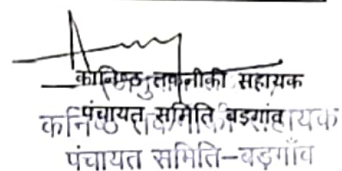 कनिष्ठ तकनीकी सहायक
पंचायत समिति बडगांव
कनिष्ठ तकनीकी सहायक
पंचायत समिति-बड़गाँव